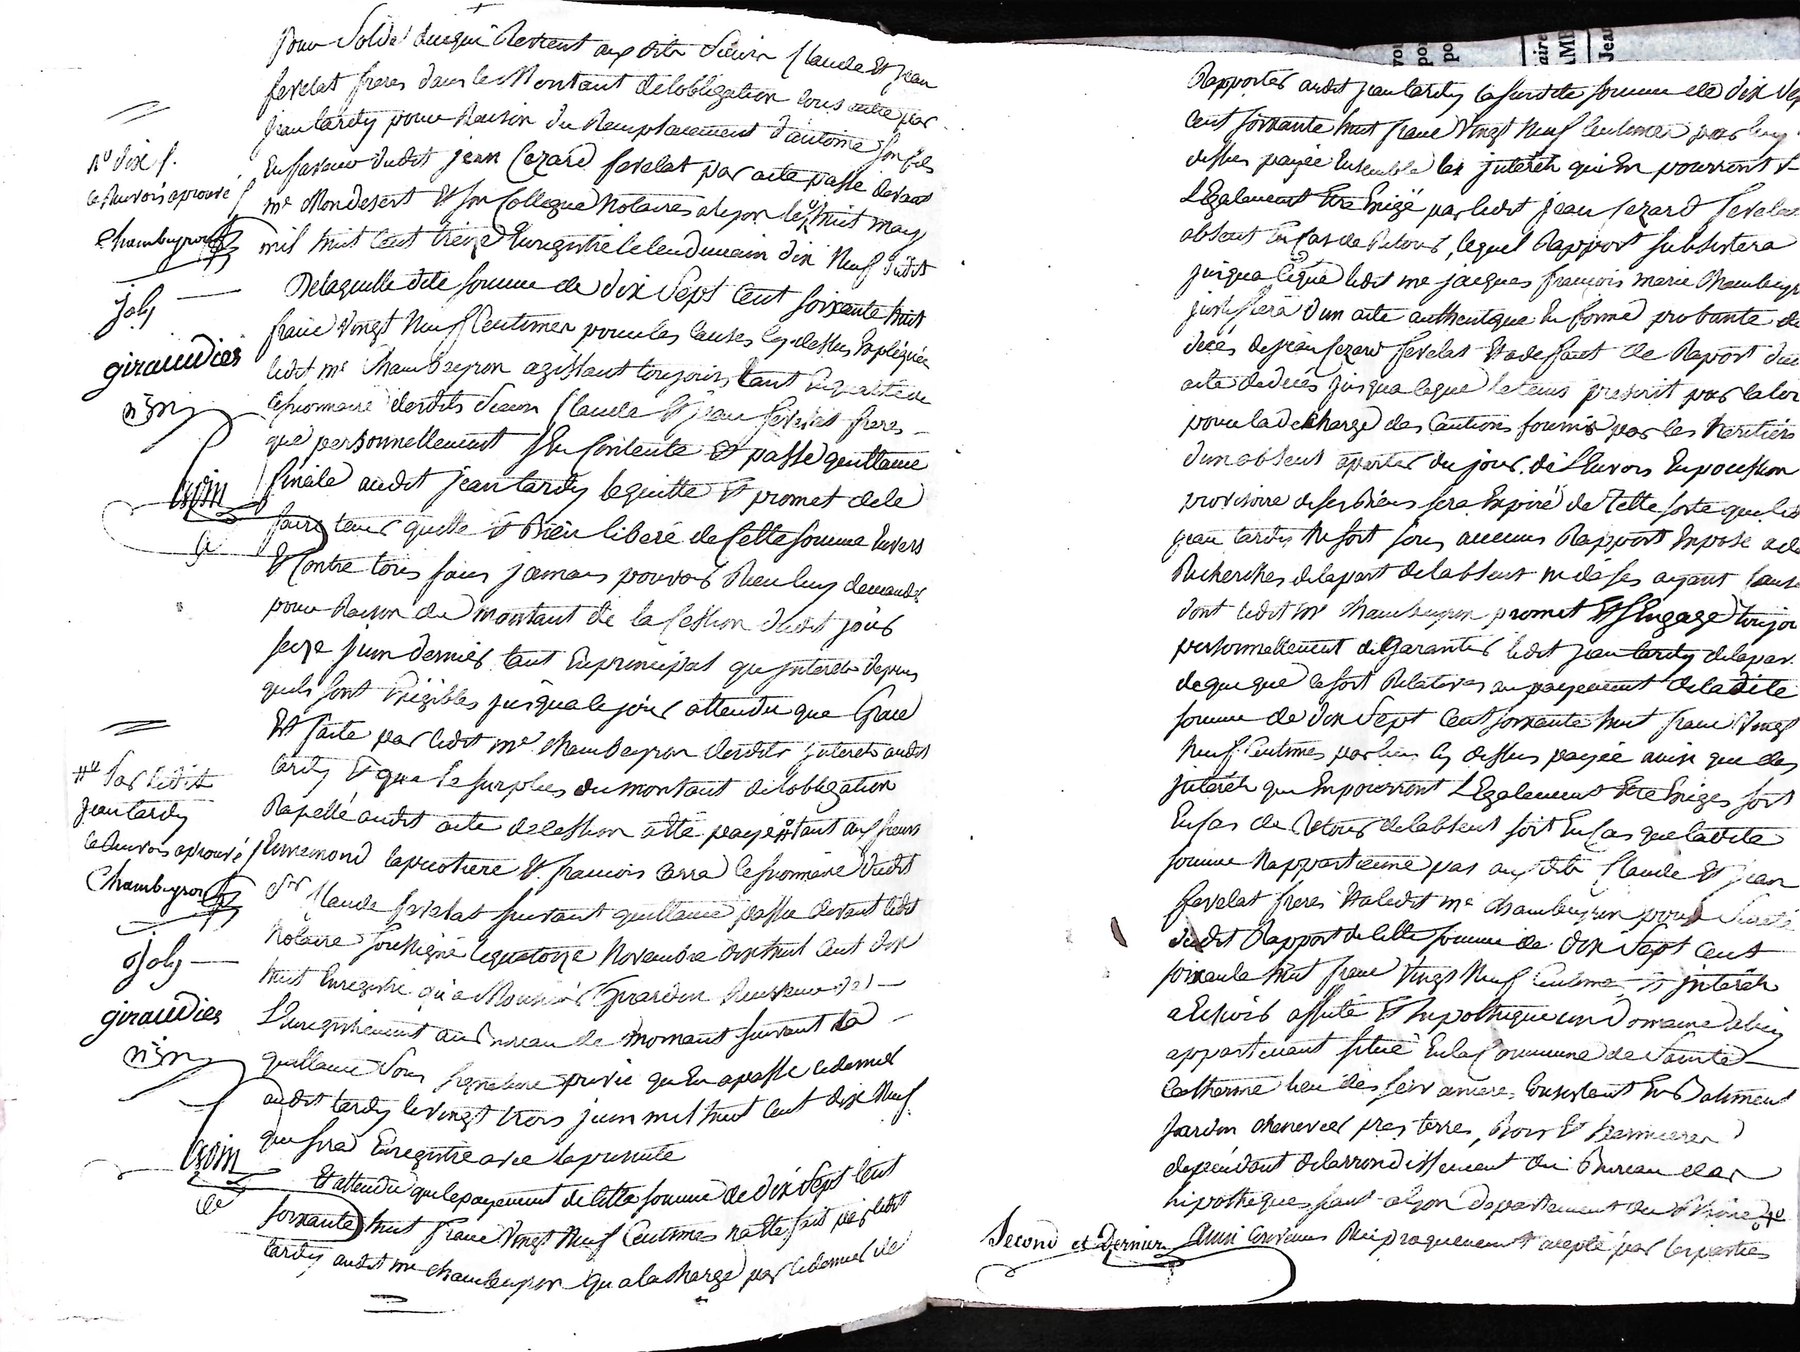 pour Solde de ce qui Revient aux dits Sieurs Claude et jean
ferelat freres dans le Montant de lobligation consentie par
jean tardy pour Raison du Remplacement d'antoine son fils
En faveur dudit jean Cezard ferelat par acte passé devant
me Mondesert et son Collegue Notaires a lyon le # huit may
mil huit Cent treize Enregistré le lendemain dix Neuf dudit
De laquelle dite somme de dix Sept Cent soixante huit
franc Vingt Neuf Centimes pour les Causes Cy dessus Expliquée
ledit me Chambeyron agissant toujours tant En qualité de
Cessionnaire desdits Sieurs Claude et jean ferelat freres
que personnellement S'En Contente et passe quittance
finale audit jean tardy le quitte et promet de le
faire tenir quitte et Bien liberé de Cette somme Envers
Et Contre tous sans jamais pouvoir Rien luy demander
pour Raison du montant de la Cession dudit jour
seize juin dernier tant En principal qu'interets depuis
quels sont Exigibles jusqua le jour attendu que Grace
Est faite par ledit me Chambeyron desdits interets audit
tardy Et que le surplus du montant de lobligation
Rapellé audit acte de Cession a été payé # tant aux sieurs
Ennemond lapierre et francois Carra Cessionnaire dudit
Sr Claude ferelat suivant quittance passée devant ledit
Notaire soussigné le quatorze Novembre dix huit Cent dix
huit Enregistré qu'a Monsieur Girardon Receveur de
L'Enregistrement au Bureau de mornant suivant la
quittance sous signature privée qu'En a passé ce dernier
audit tardy le vingt trois juin mil huit Cent dix Neuf
qui sera Enregistrée avec la presente
Et attendu que le payement de Cette somme de dix Sept Cent
soixante huit franc Vingt Neuf Centimes na été fait par ledit
tardy audit me Chambeyron qu'a la Charge par ce dernier de
# dix /.
Le Renvois aprouvé
Chambeyron
joly
giraudier
# par ledit
jean tardy
Le Renvois aprouvé
Chambeyron
joly
giraudier
Rapporter audit jean tardy la susdite somme de dix Sept
Cent soixante huit franc Vingt Neuf Centimes par luy
dessus payée Ensemble les interets qui En pourront
L'Egalement Etre Exigé par ledit jean Cezard ferelat
absent En Cas de Retour, lequel Rapport subsistera
jusqua Ceque ledit me jacques francois marie Chambeyron
justifiera d'un acte authentique En forme probante de
décés de jean Cezard ferelat Et a defaut de Raport dud
acte de décés jusqua Ceque le tems prescrit par la loi
pour la decharge des Cautions fournis par les heritiers
d'un absent a partir du jour de l'Envois En possession
provisoire de ses Biens sera Expiré de Telle sorte que ledit
jean tardy Ne soit sous aucuns Rapport Exposé a des
Recherches de la part de labsent ni de ses ayant Cause
dont ledit me Chambeyron promet Et s'Engage toujours
personnellement de Garantir ledit jean tardy de la part
de qui que ce soit Relatives au payement de la dite
somme de dix Sept Cent soixante huit franc Vingt
Neuf Centimes par luy Cy dessus payée ainsi que des
interets qui En pourront L'Egalement Etre Exiges soit
En Cas de Retour de labsent soit En Cas que ladite
somme Nappartienne pas aux dits Claude et jean
ferelat freres Et aledit me Chambeyron pour Sureté
dudit Rapport de Cette somme de dix Sept Cent
soixante huit franc Vingt Neuf Centimes et interets
affecté Et hypothéqué un Domaine a luy
appartenant situé En la Commune de Sainte
Catherine lieu des Consistant En Batiment
Jardin chenevier pres terres, Bois et
dependant de larrondissement du Bureau des
hipotheques seant a lyon departement du Rhône
Ainsi Convenu Reciproquement accepté par les parties
Second et Dernier